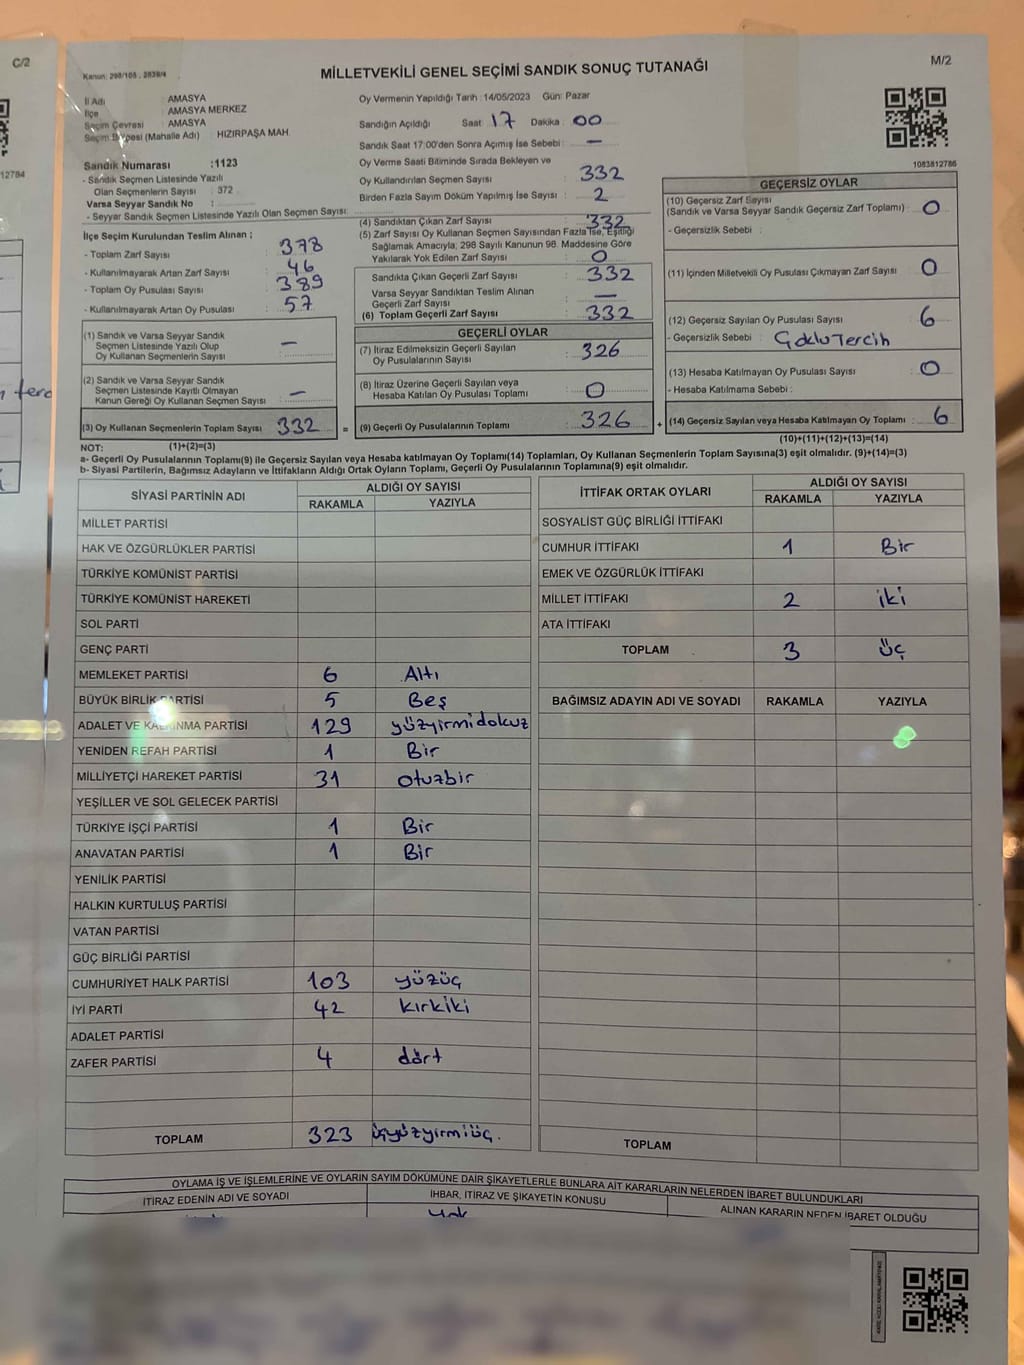 C/2
12784
M/2
Kanun: 298/105 , 2839/4
MİLLETVEKİLİ GENEL SEÇİMİ SANDIK SONUÇ TUTANAĞI
İl Adı : AMASYA
İlçe : AMASYA MERKEZ
Seçim Çevresi : AMASYA
Seçim Bölgesi (Mahalle Adı) : HIZIRPAŞA MAH
Sandık Numarası :1123
- Sandık Seçmen Listesinde Yazılı
Olan Seçmenlerin Sayısı : 372
Varsa Seyyar Sandık No :
- Seyyar Sandık Seçmen Listesinde Yazılı Olan Seçmen Sayısı:
İlçe Seçim Kurulundan Teslim Alınan ;
- Toplam Zarf Sayısı : 378
- Kullanılmayarak Artan Zarf Sayısı : 46
- Toplam Oy Pusulası Sayısı : 389
- Kullanılmayarak Artan Oy Pusulası : 57
(1) Sandık ve Varsa Seyyar Sandık
Seçmen Listesinde Yazılı Olup
Oy Kullanan Seçmenlerin Sayısı : —
(2) Sandık ve Varsa Seyyar Sandık
Seçmen Listesinde Kayıtlı Olmayan
Kanun Gereği Oy Kullanan Seçmen Sayısı : —
(3) Oy Kullanan Seçmenlerin Toplam Sayısı : 332 =
Oy Vermenin Yapıldığı Tarih :14/05/2023 Gün: Pazar
Sandığın Açıldığı Saat : 17 Dakika : 00
Sandık Saat 17:00'den Sonra Açımış İse Sebebi : —
Oy Verme Saati Bitiminde Sırada Bekleyen ve
Oy Kullandırılan Seçmen Sayısı : 332
Birden Fazla Sayım Döküm Yapılmış İse Sayısı : 2
(4) Sandıktan Çıkan Zarf Sayısı : 332
(5) Zarf Sayısı Oy Kullanan Seçmen Sayısından Fazla İse, Eşitliği
Sağlamak Amacıyla; 298 Sayılı Kanunun 98. Maddesine Göre
Yakılarak Yok Edilen Zarf Sayısı : 0
Sandıkta Çıkan Geçerli Zarf Sayısı : 332
Varsa Seyyar Sandıktan Teslim Alınan
Geçerli Zarf Sayısı : —
(6) Toplam Geçerli Zarf Sayısı : 332
GEÇERLİ OYLAR
(7) İtiraz Edilmeksizin Geçerli Sayılan
Oy Pusulalarının Sayısı : 326
(8) İtiraz Üzerine Geçerli Sayılan veya
Hesaba Katılan Oy Pusulası Toplamı : 0
(9) Geçerli Oy Pusulalarının Toplamı : 326 +
1083812786
GEÇERSİZ OYLAR
(10) Geçersiz Zarf Sayısı
(Sandık ve Varsa Seyyar Sandık Geçersiz Zarf Toplamı) : 0
- Geçersizlik Sebebi :
(11) İçinden Milletvekili Oy Pusulası Çıkmayan Zarf Sayısı : 0
(12) Geçersiz Sayılan Oy Pusulası Sayısı : 6
- Geçersizlik Sebebi : Çoklu Tercih
(13) Hesaba Katılmayan Oy Pusulası Sayısı : 0
- Hesaba Katılmama Sebebi :
(14) Geçersiz Sayılan veya Hesaba Katılmayan Oy Toplamı : 6
NOT: (1)+(2)=(3)
(10)+(11)+(12)+(13)=(14)
a- Geçerli Oy Pusulalarının Toplamı(9) ile Geçersiz Sayılan veya Hesaba katılmayan Oy Toplamı(14) Toplamları, Oy Kullanan Seçmenlerin Toplam Sayısına(3) eşit olmalıdır. (9)+(14)=(3)
b- Siyasi Partilerin, Bağımsız Adayların ve İttifakların Aldığı Ortak Oyların Toplamı, Geçerli Oy Pusulalarının Toplamına(9) eşit olmalıdır.
SİYASİ PARTİNİN ADI ALDIĞI OY SAYISI
RAKAMLA YAZIYLA
MİLLET PARTİSİ
HAK VE ÖZGÜRLÜKLER PARTİSİ
TÜRKİYE KOMÜNİST PARTİSİ
TÜRKİYE KOMÜNİST HAREKETİ
SOL PARTİ
GENÇ PARTİ
MEMLEKET PARTİSİ 6 Altı
BÜYÜK BİRLİK PARTİSİ 5 Beş
ADALET VE KALKINMA PARTİSİ 129 yüzyirmidokuz
YENİDEN REFAH PARTİSİ 1 Bir
MİLLİYETÇİ HAREKET PARTİSİ 31 otuzbir
YEŞİLLER VE SOL GELECEK PARTİSİ
TÜRKİYE İŞÇİ PARTİSİ 1 Bir
ANAVATAN PARTİSİ 1 Bir
YENİLİK PARTİSİ
HALKIN KURTULUŞ PARTİSİ
VATAN PARTİSİ
GÜÇ BİRLİĞİ PARTİSİ
CUMHURİYET HALK PARTİSİ 103 yüzüç
İYİ PARTİ 42 kırkiki
ADALET PARTİSİ
ZAFER PARTİSİ 4 dört
TOPLAM 323 üçyüzyirmiüç.
İTTİFAK ORTAK OYLARI ALDIĞI OY SAYISI
RAKAMLA YAZIYLA
SOSYALİST GÜÇ BİRLİĞİ İTTİFAKI
CUMHUR İTTİFAKI 1 Bir
EMEK VE ÖZGÜRLÜK İTTİFAKI
MİLLET İTTİFAKI 2 iki
ATA İTTİFAKI
TOPLAM 3 üç
BAĞIMSIZ ADAYIN ADI VE SOYADI RAKAMLA YAZIYLA
TOPLAM
OYLAMA İŞ VE İŞLEMLERİNE VE OYLARIN SAYIM DÖKÜMÜNE DAİR ŞİKAYETLERLE BUNLARA AİT KARARLARIN NELERDEN İBARET BULUNDUKLARI
İTİRAZ EDENİN ADI VE SOYADI İHBAR, İTİRAZ VE ŞİKAYETİN KONUSU ALINAN KARARIN NEDEN İBARET OLDUĞU